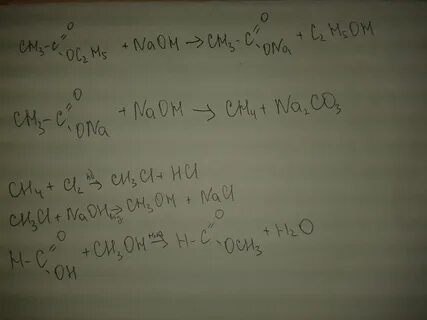 CH3-C(=O)OC2H5 + NaOH → CH3-C(=O)ONa + C2H5OH
CH3-C(=O)ONa + NaOH → CH4 + Na2CO3
CH4 + Cl2 → CH3Cl + HCl
CH3Cl + NaOH → CH3OH + NaCl
H-C(=O)OH + CH3OH → H-C(=O)OCH3 + H2O